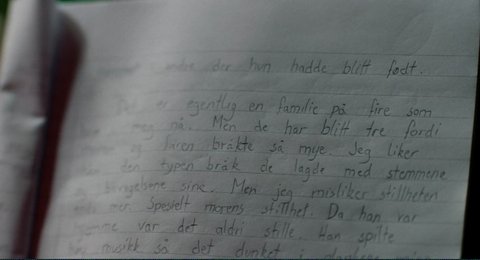 andre der hun hadde blitt født.
Det er egentlig en familie på fire som
meg nå. Men de har blitt tre fordi
og faren bråkte så mye. Jeg liker
den typen bråk de lagde med stemmene
og bevegelsene sine. Men jeg misliker stillheten
enda mer. Spesielt morens stillhet. Da han var
hjemme var det aldri stille. Han spilte
musikk så det dunket i